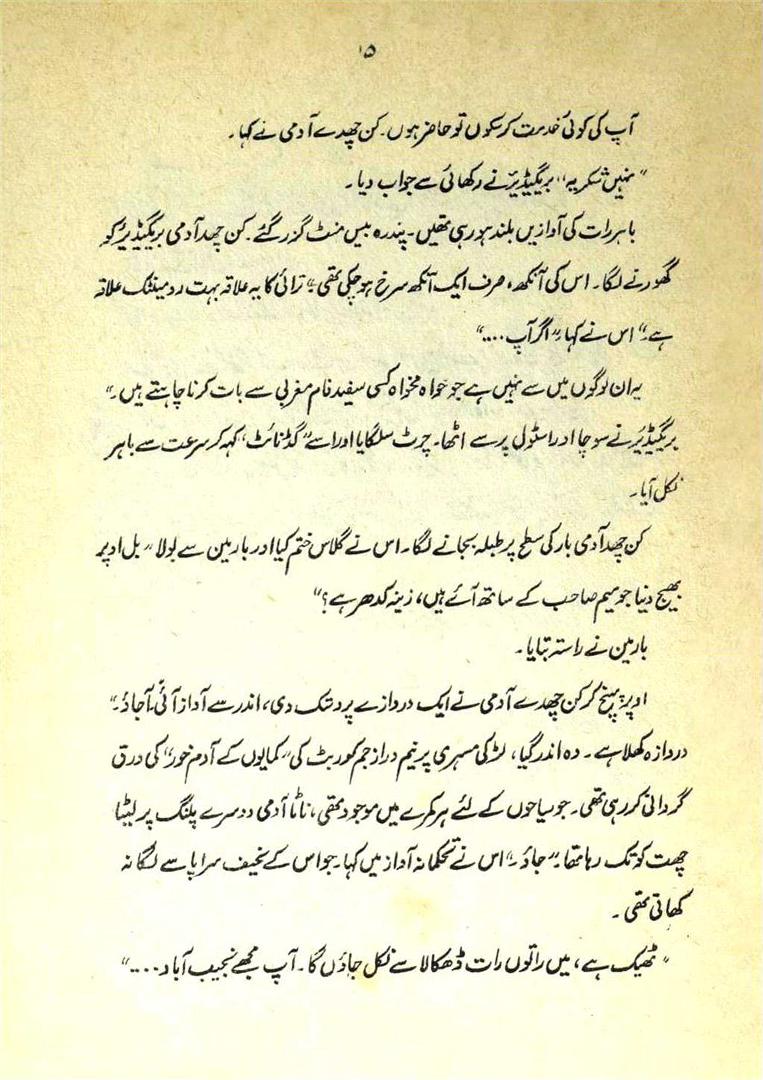 ۱۵
آپ کی کوئی خدمت کر سکوں تو حاضر ہوں۔ کن چھدے آدمی نے کہا۔
"نہیں شکریہ" بریگیڈیر نے رکھائی سے جواب دیا۔
باہر رات کی آوازیں بلند ہو رہی تھیں۔ پندرہ بیس منٹ گزر گئے۔ کن چھدا آدمی بریگیڈیر کو
گھورنے لگا۔ اس کی آنکھ، صرف ایک آنکھ سرخ ہو چکی تھی۔ "ترائی کا یہ علاقہ بہت رومینٹک علاقہ
ہے۔" اس نے کہا۔ "اگر آپ...."
یہ ان لوگوں میں سے نہیں ہے جو خواہ مخواہ کسی سفید فام مغربی سے بات کرنا چاہتے ہیں۔"
بریگیڈیر نے سوچا اور اسٹول پر سے اٹھا۔ چرٹ سلگایا اور اسے "گڈنائٹ" کہہ کر سرعت سے باہر
نکل آیا۔
کن چھدا آدمی بار کی سطح پر طبلہ بجانے لگا۔ اس نے گلاس ختم کیا اور بارمین سے بولا "بل اوپر
بھیج دینا جو میم صاحب کے ساتھ آئے ہیں، زینہ کدھر ہے؟"
بارمین نے راستہ بتایا۔
اوپر پہنچ کر کن چھدے آدمی نے ایک دروازے پر دستک دی، اندر سے آواز آئی۔ "آجاؤ۔"
دروازہ کھلا ہے۔ وہ اندر گیا، لڑکی مسہری پر نیم دراز جم کوربٹ کی "کمایوں کے آدم خور" کی ورق
گردانی کر رہی تھی۔ جو سیاحوں کے لئے ہر کمرے میں موجود تھی، ناٹا آدمی دوسرے پلنگ پر لیٹا
چھت کو تک رہا تھا۔ "جاؤ۔" اس نے تحکمانہ آواز میں کہا۔ جو اس کے نحیف سراپا سے لگا نہ
کھاتی تھی۔
"ٹھیک ہے، میں راتوں رات ڈھکالا سے نکل جاؤں گا۔ آپ مجھے نجیب آباد...."